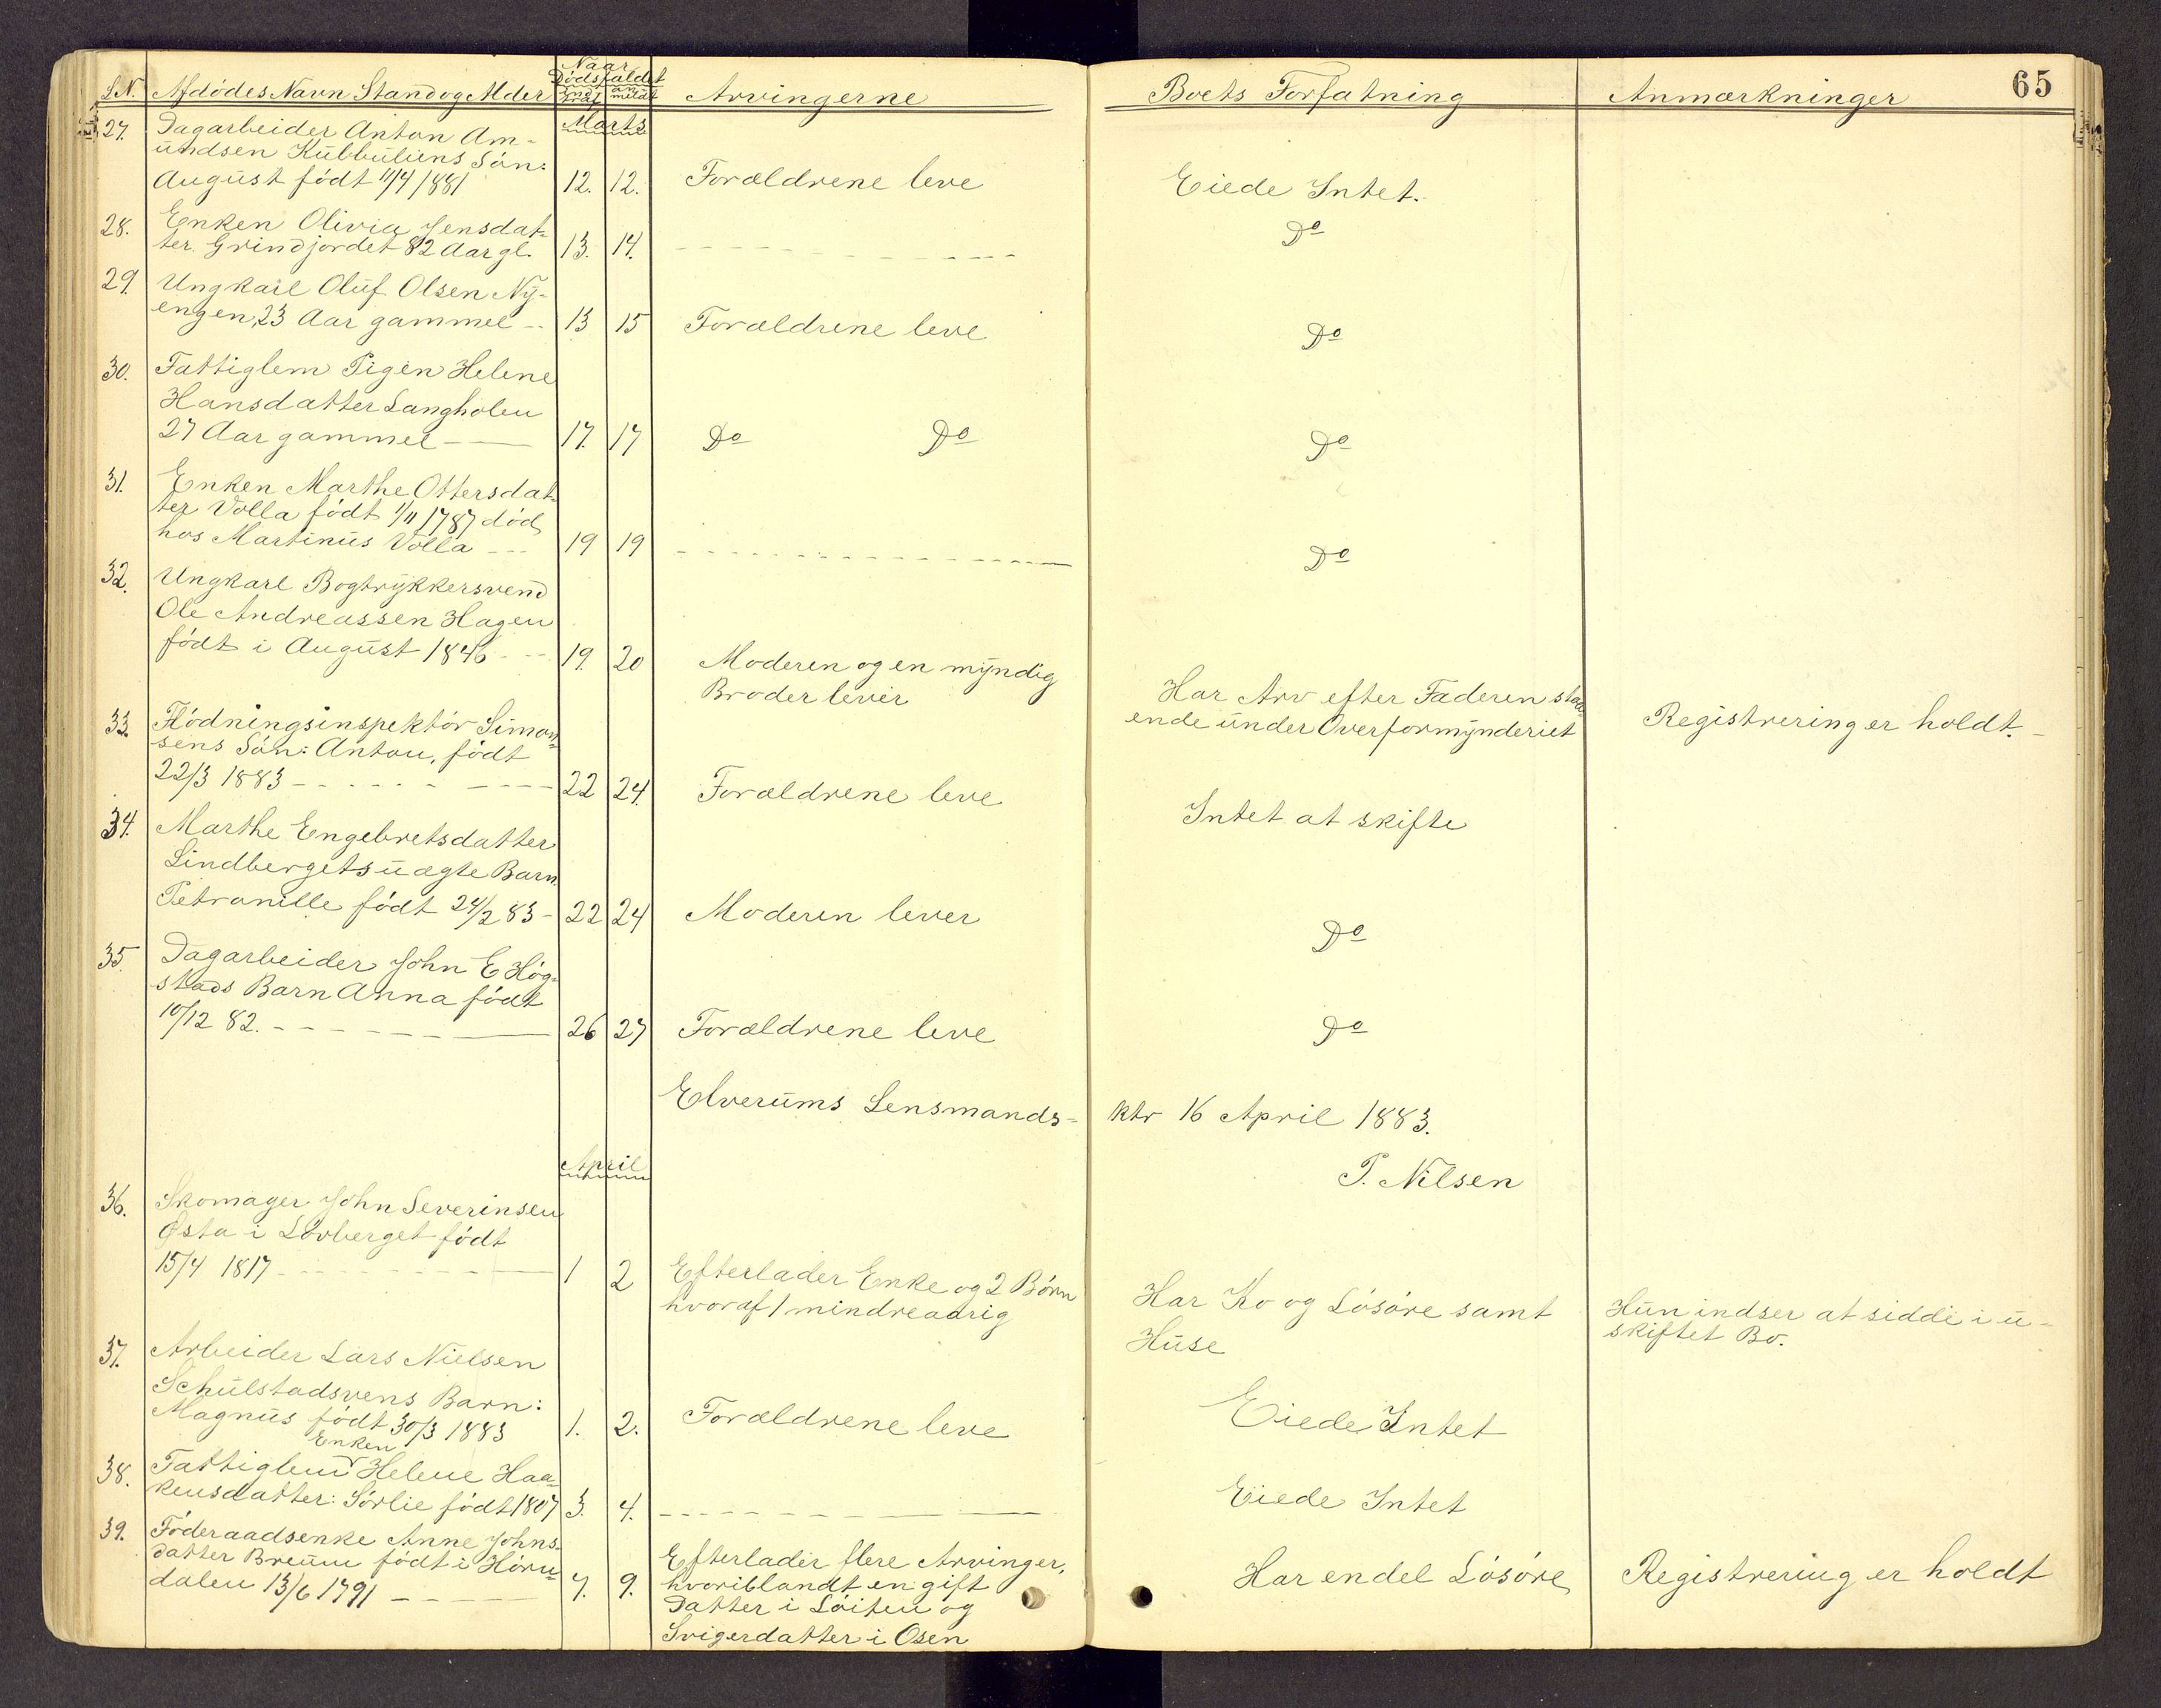 65
L.N. Afdödes Navn Stand og Alder Naar Dödsfaldet indtraf anmeldt Arvingerne Boets Forfatning Anmærkninger
Marts
27. Dagarbeider Anton Am-
undsen Kubbuliens Sön:
August födt 11/4 1881 12. 12. Forældrene leve Eiede Intet.
28. Enken Olivia Jensdat-
ter Grindjordet 82 Aar gl. 13. 14. Do
29. Ungkarl Oluf Olsen Ny-
engen, 23 Aar gammel 13 15 Forældrene leve Do
30. Fattiglem Pigen Helene
Hansdatter Langholen
27 Aar gammel 17. 17 Do Do Do
31. Enken Marthe Ottersdat-
ter Volla födt 1/11 1787 död
hos Martinus Volla 19 19 Do
32. Ungkarl Bogtrykkersvend
Ole Andreassen Hagen
födt i August 1846 19. 20 Moderen og en myndig
Broder lever
Har Arv efter Faderen staa-
ende under Overformynderiet
Registrering er holdt.
33. Flödningsinspektör Simon-
sens Sön: Anton, födt
22/3 1883 22 24. Forældrene leve Intet at skifte
34. Marthe Engebretsdatter
Lindbergets uægte Barn
Petronille födt 24/2 83 22 24 Moderen lever Do
35. Dagarbeider John E Hög-
stads Barn Anna födt
10/12 82. 26 27 Forældrene leve Do
Elverums Lensmands-ktr 16 April 1883.
P. Nilsen
April
36. Skomager John Severinsen
Østa i Lövberget födt
15/4 1817 1 2 Efterlader Enke og 2 Börn
hvoraf 1 mindreaarig
Har Ko og Lösöre samt
Huse
Hun indser at sidde i u-
skiftet Bo.
37. Arbeider Lars Nielsen
Schulstadsvens Barn:
Magnus födt 30/3 1883 1. 2. Forældrene leve Eiede Intet
Enken
38. Fattiglem Helene Haa-
kensdatter: Sörlie födt 1807 3. 4. Eiede Intet
39. Föderaadsenke Anne Johns-
datter Breum födt i Hörn-
dalen 13/6 1791 7. 9. Efterlader flere Arvinger,
hvoriblandt en gift
Datter i Löiten og
Svigerdatter i Osen
Har endel Lösöre
Registrering er holdt